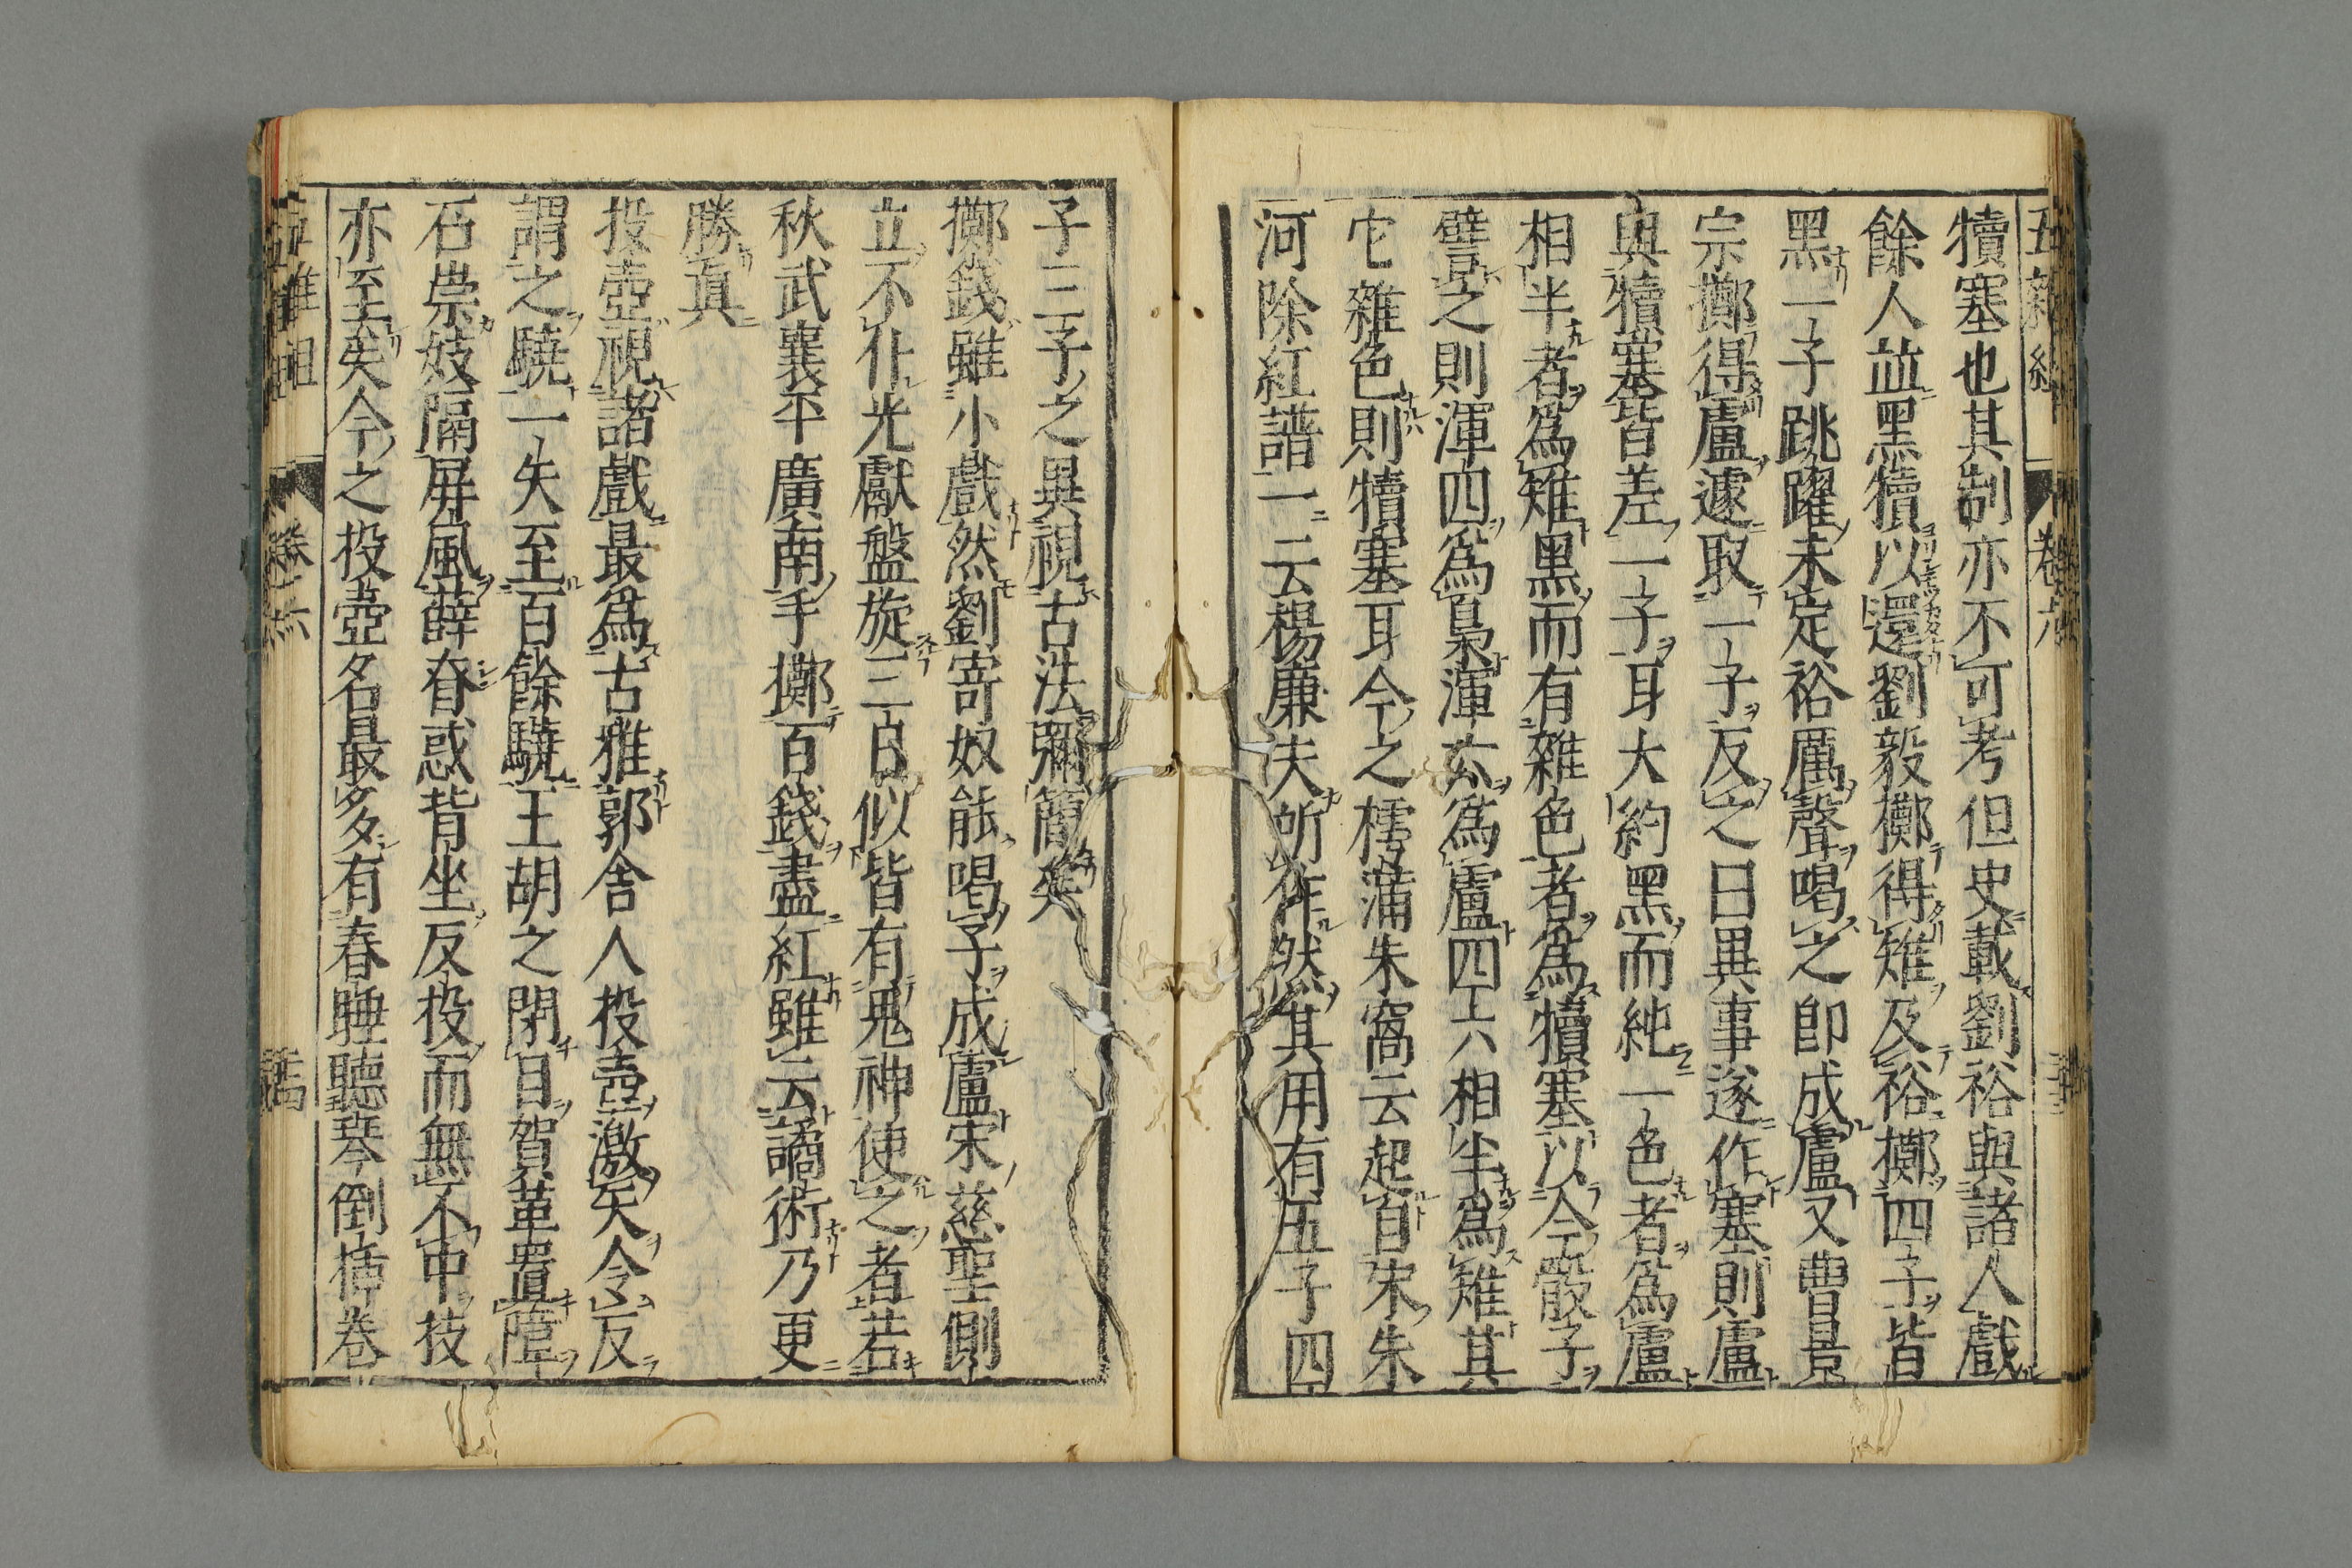 五雜組 卷六
犢塞也其制亦不可考但史載劉裕與諸人戲
餘人並黑犢以還劉毅擲得雉及裕擲四子皆
黑一子跳躍未定裕厲聲喝之卽成盧又曹景
宗擲得盧遽取一子反之曰異事遂作塞則盧
與犢塞皆差一子耳大約黑而純一色者爲盧
相半者爲雉黑而有雜色者爲犢塞以今骰子
譬之則渾四爲梟渾六爲盧四六相半爲雉其
它雜色則犢塞耳今之樗蒲朱窩云起自宋朱
河除紅譜一云楊廉夫所作然其用有五子四
子三子之異視古法彌簡矣
擲錢雖小戲然劉寄奴能喝子成盧宋慈聖側
立不仆光獻盤旋三日似皆有鬼神使之者若
秋武襄平廣南手擲百錢盡紅雖云譎術乃更
勝眞
投壺視諸戲最爲古雅郭舍人投壺激矢令反
謂之驍一矢至百餘驍王胡之閉目賀革置障
石崇妓隔屏風薛眘惑背坐反投而無不中技
亦至矣今之投壺名最多有春睡聽琴倒揷卷
五雜組 卷六